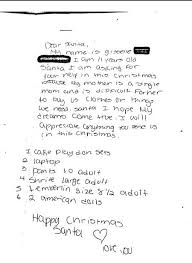 Dear Santa,
My name is
I am 11 years old
Santa I am asking for
your help in this Christmas
because my mother is a single
mom and is difficult
to buy us clothes or things
we need. Santa I hope my
dreams come true. I will
appreciate you send us
in this Christmas
1 cake play doh sets
2 laptop
3 pants 10 adult
4 large adult
5 8 1/2 adult
6 2 american dolls
Happy Christmas
Santa ♡
love you